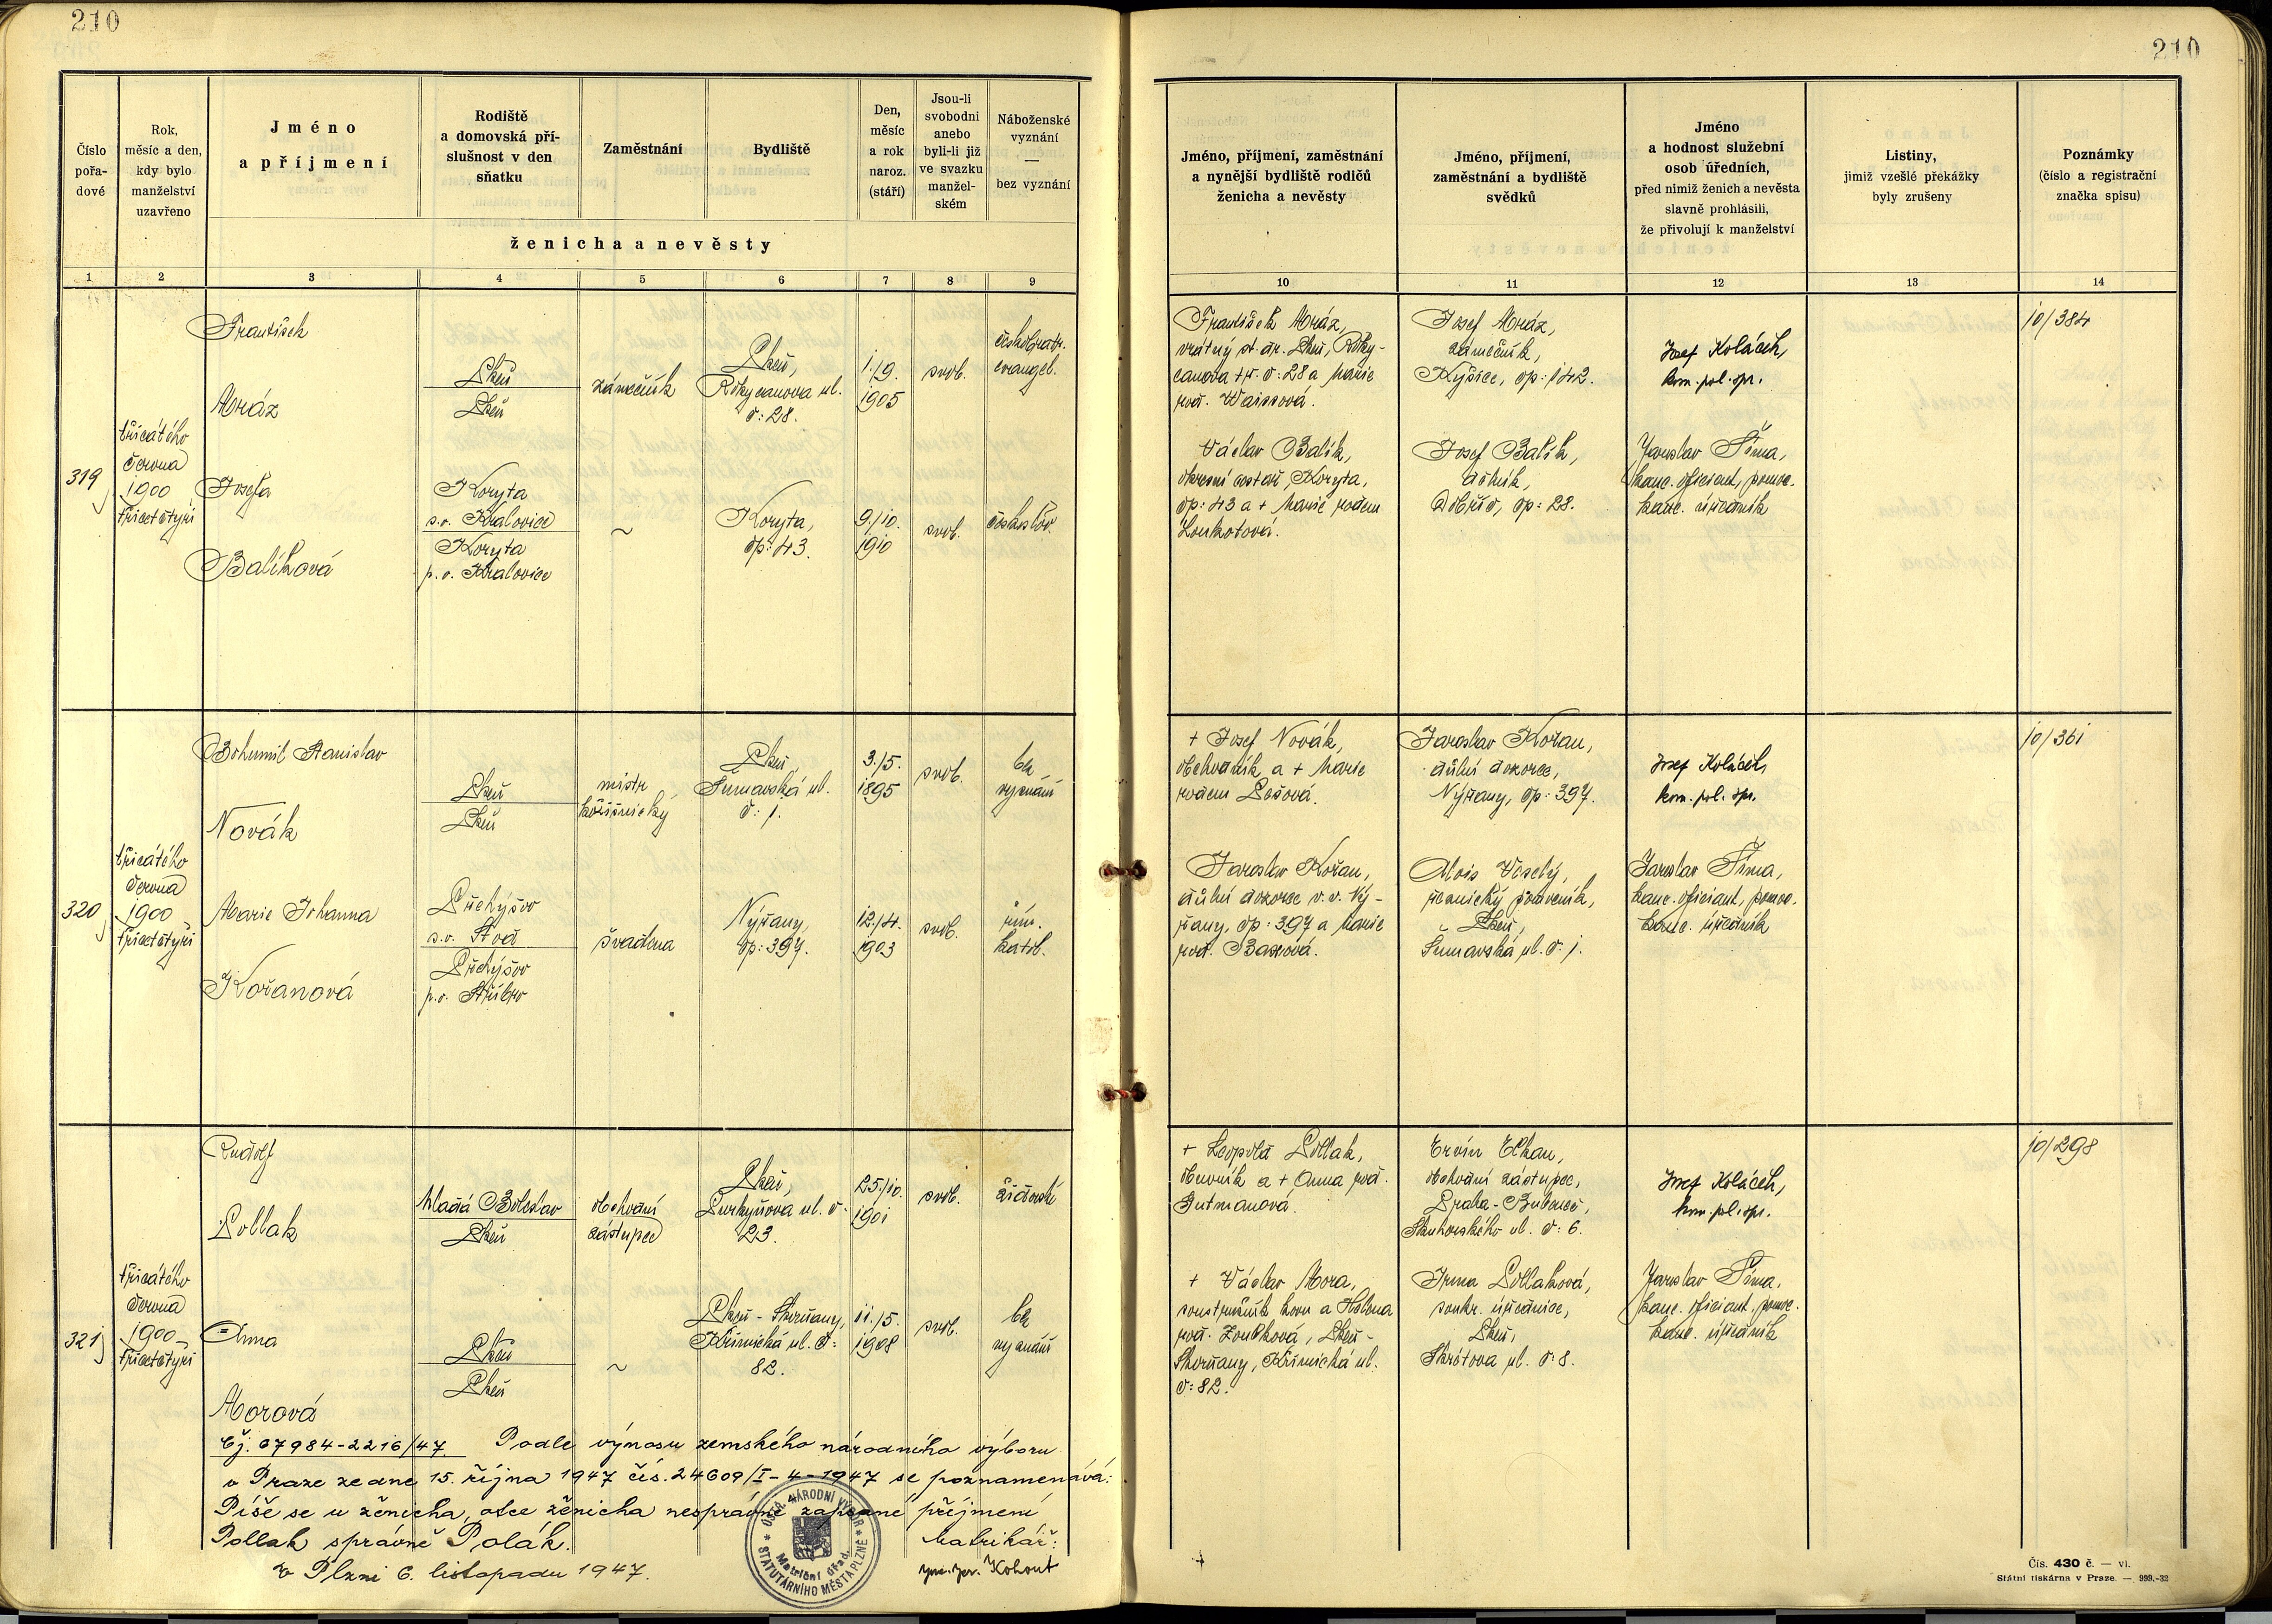 210
210
Číslo pořa-dové
Rok, měsíc a den, kdy bylo manželství uzavřeno
Jméno a příjmení
Rodiště a domovská pří-slušnost v den sňatku
Zaměstnání
Bydliště
Den, měsíc a rok naroz. (stáří)
Jsou-li svobodni anebo byli-li již ve svazku manžel-ském
Náboženské vyznání — bez vyznání
ženicha a nevěsty
Jméno, příjmení, zaměstnání a nynější bydliště rodičů ženicha a nevěsty
Jméno, příjmení, zaměstnání a bydliště svědků
Jméno a hodnost služební osob úředních, před nimiž ženich a nevěsta slavně prohlásili, že přivolují k manželství
Listiny, jimiž vzešlé překážky byly zrušeny
Poznámky (číslo a registrační značka spisu)
1 2 3 4 5 6 7 8 9 10 11 12 13 14
319
třicátého
června
1900
třicetčtyři
František
Mráz
Plzeň
Plzeň
zámečník
Plzeň,
Rokycanova ul.
č: 28.
1./9.
1905
svob.
českobratr.
evangel.
František Mráz,
vrátný st. dr. Plzeň, Roky-
canova tř. č: 28 a Marie
roz. Waissová.
Josef Mráz,
zámečník,
Kyšice, čp: 142.
Josef Koláček,
kom. pol. spr.
10/384
Josefa
Balíková
Koryta
s.o. Kralovice
Koryta
p.o. Kralovice
~
Koryta,
čp: 43.
9./10.
1910
svob.
českoslov.
Václav Balík,
okresní cestář, Koryta,
čp: 43 a + Marie rodem
Loukotová.
Josef Balík,
dělník,
Dobříč, čp: 28.
Jaroslav Šíma,
kanc. oficiant, pomoc.
kanc. úředník
320
třicátého
června
1900
třicetčtyři
Bohumil Stanislav
Novák
Plzeň
Plzeň
mistr
kožišnický
Plzeň,
Šumavská ul.
č: 1.
3./5.
1895
svob.
bez
vyznání
+ Josef Novák,
obchodník a + Marie
rodem Pešová.
Jaroslav Kořan,
důlní dozorce,
Nýřany, čp: 397.
Josef Koláček,
kom. pol. spr.
10/361
Marie Johanna
Kořanová
Přehýšov
s.o. Stod
Přehýšov
p.o. Stříbro
švadlena
Nýřany,
čp: 397.
12./4.
1903
svob.
řím.
katol.
Jaroslav Kořan,
důlní dozorce v.v. Ný-
řany, čp: 397 a Marie
roz.
Alois Veselý,
řeznický pomocník,
Plzeň,
Šumavská ul. č: 1.
Jaroslav Šíma,
kanc. oficiant, pomoc.
kanc. úředník
321
třicátého
června
1900
třicetčtyři
Rudolf
Pollak
Mladá Boleslav
Plzeň
obchodní
zástupce
Plzeň,
Purkyňova ul. č:
23.
25./10.
1901
svob.
židovské
+ Leopold Pollak,
obuvník a + Anna roz.
Gutmanová.
Ervín Elkan,
obchodní zástupce,
Praha-Bubeneč,
Skuherského ul. č: 6.
Josef Koláček,
kom. pol. spr.
10/298
Anna
Morová
Plzeň
Plzeň
~
Plzeň - Skvrňany,
Křimická ul. č:
82.
11./5.
1908
svob.
bez
vyznání
+ Václav Mora,
soustružník kovu a Helena
roz. Zoubková, Plzeň-
Skvrňany, Křimická ul.
č: 82.
Irma Pollaková,
soukr. úřednice,
Plzeň,
Škrétova ul. č: 8.
Jaroslav Šíma,
kanc. oficiant, pomoc.
kanc. úředník
Čj. 67984-2216/47. Podle výnosu zemského národního výboru
v Praze ze dne 15. října 1947 čís. 24609/I-4-1947 se poznamenává:
Píše se u ženicha, otce ženicha nesprávně zapsané příjmení
Pollak správně Polák.
Matrikář:
V Plzni 6. listopadu 1947.
Kohout
ÚSTŘ. NÁRODNÍ VÝBOR * STATUTÁRNÍHO MĚSTA PLZNĚ *
Matriční úřad.
Čís. 430 č. — vl.
Státní tiskárna v Praze. — 999.-32